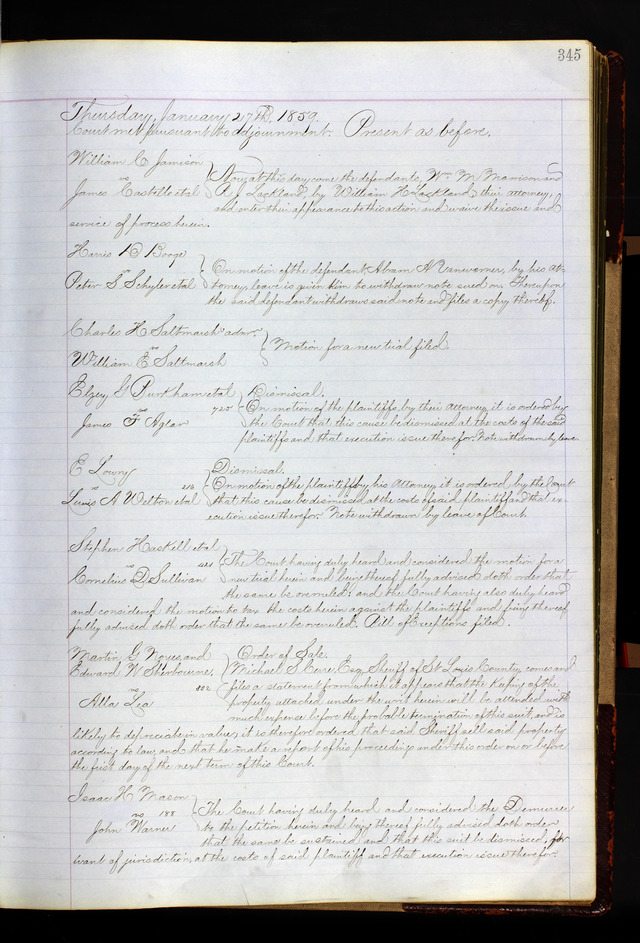 345
Thursday, January 27th, 1859.
Court met pursuant to adjournment. Present as before.
William C Jamison
vs
James Castello etal
Now at this day come the defendants, Wm M. Morrison and
R J Lackland, by William H Lackland their attorney,
and enter their appearance to this action and waive the issue and
service of process herein.
Harris D Booge
vs
Peter S Schuyler etal
On motion of the defendant Abram A Vanwormer, by his at-
torney, leave is given him to withdraw note sued on. Thereupon
the said defendant withdraws said note and files a copy thereof.
Charles H Saltmarsh admr.
vs
William E Saltmarsh
Motion for a new trial filed
Elzey G Burkham etal
vs 725
James F Aglar
Dismissal.
On motion of the plaintiffs, by their Attorney, it is ordered by
the Court that this cause be dismissed at the costs of the said
plaintiffs and that execution issue therefor. Note withdrawn by leave
E Lowry
vs 213
Lewis A Welton etal
Dismissal.
On motion of the plaintiff by his Attorney, it is ordered by the Court
that this cause be dismissed, at the costs of said plaintiff and that ex-
ecution issue therefor. Note withdrawn by leave of Court.
Stephen Haskell etal
vs
Cornelius D Sullivan
The Court having duly heard and considered the motion for a
new trial herein and being thereof fully advised doth order that
the same be overruled: and the Court having also duly heard
and considered the motion to tax the costs herein against the plaintiffs and being thereof
fully advised doth order that the same be overruled. Bill of Exceptions filed.
Martin G Noyes, and
Edward W Sherbourne,
vs 802
Alla Lea
Order of Sale.
Michael S. Cerre, Esq Sheriff of St Louis County, comes and
files a statement from which it appears that the keeping of the
property attached under the writ herein will be attended with
much expense before the probable termination of this suit, and is
likely to depreciate in value; it is therefore ordered that said Sheriff sell said property
according to law, and that he make a report of his proceedings under this order on or before
the first day of the next term of this Court.
Isaac H Mason
vs 188
John Warner
The Court having duly heard and considered the Demurrer
to the petition herein and being thereof fully advised doth order
that the same be sustained and that this suit be dismissed, for
want of jurisdiction, at the costs of said plaintiff and that execution issue therefor.